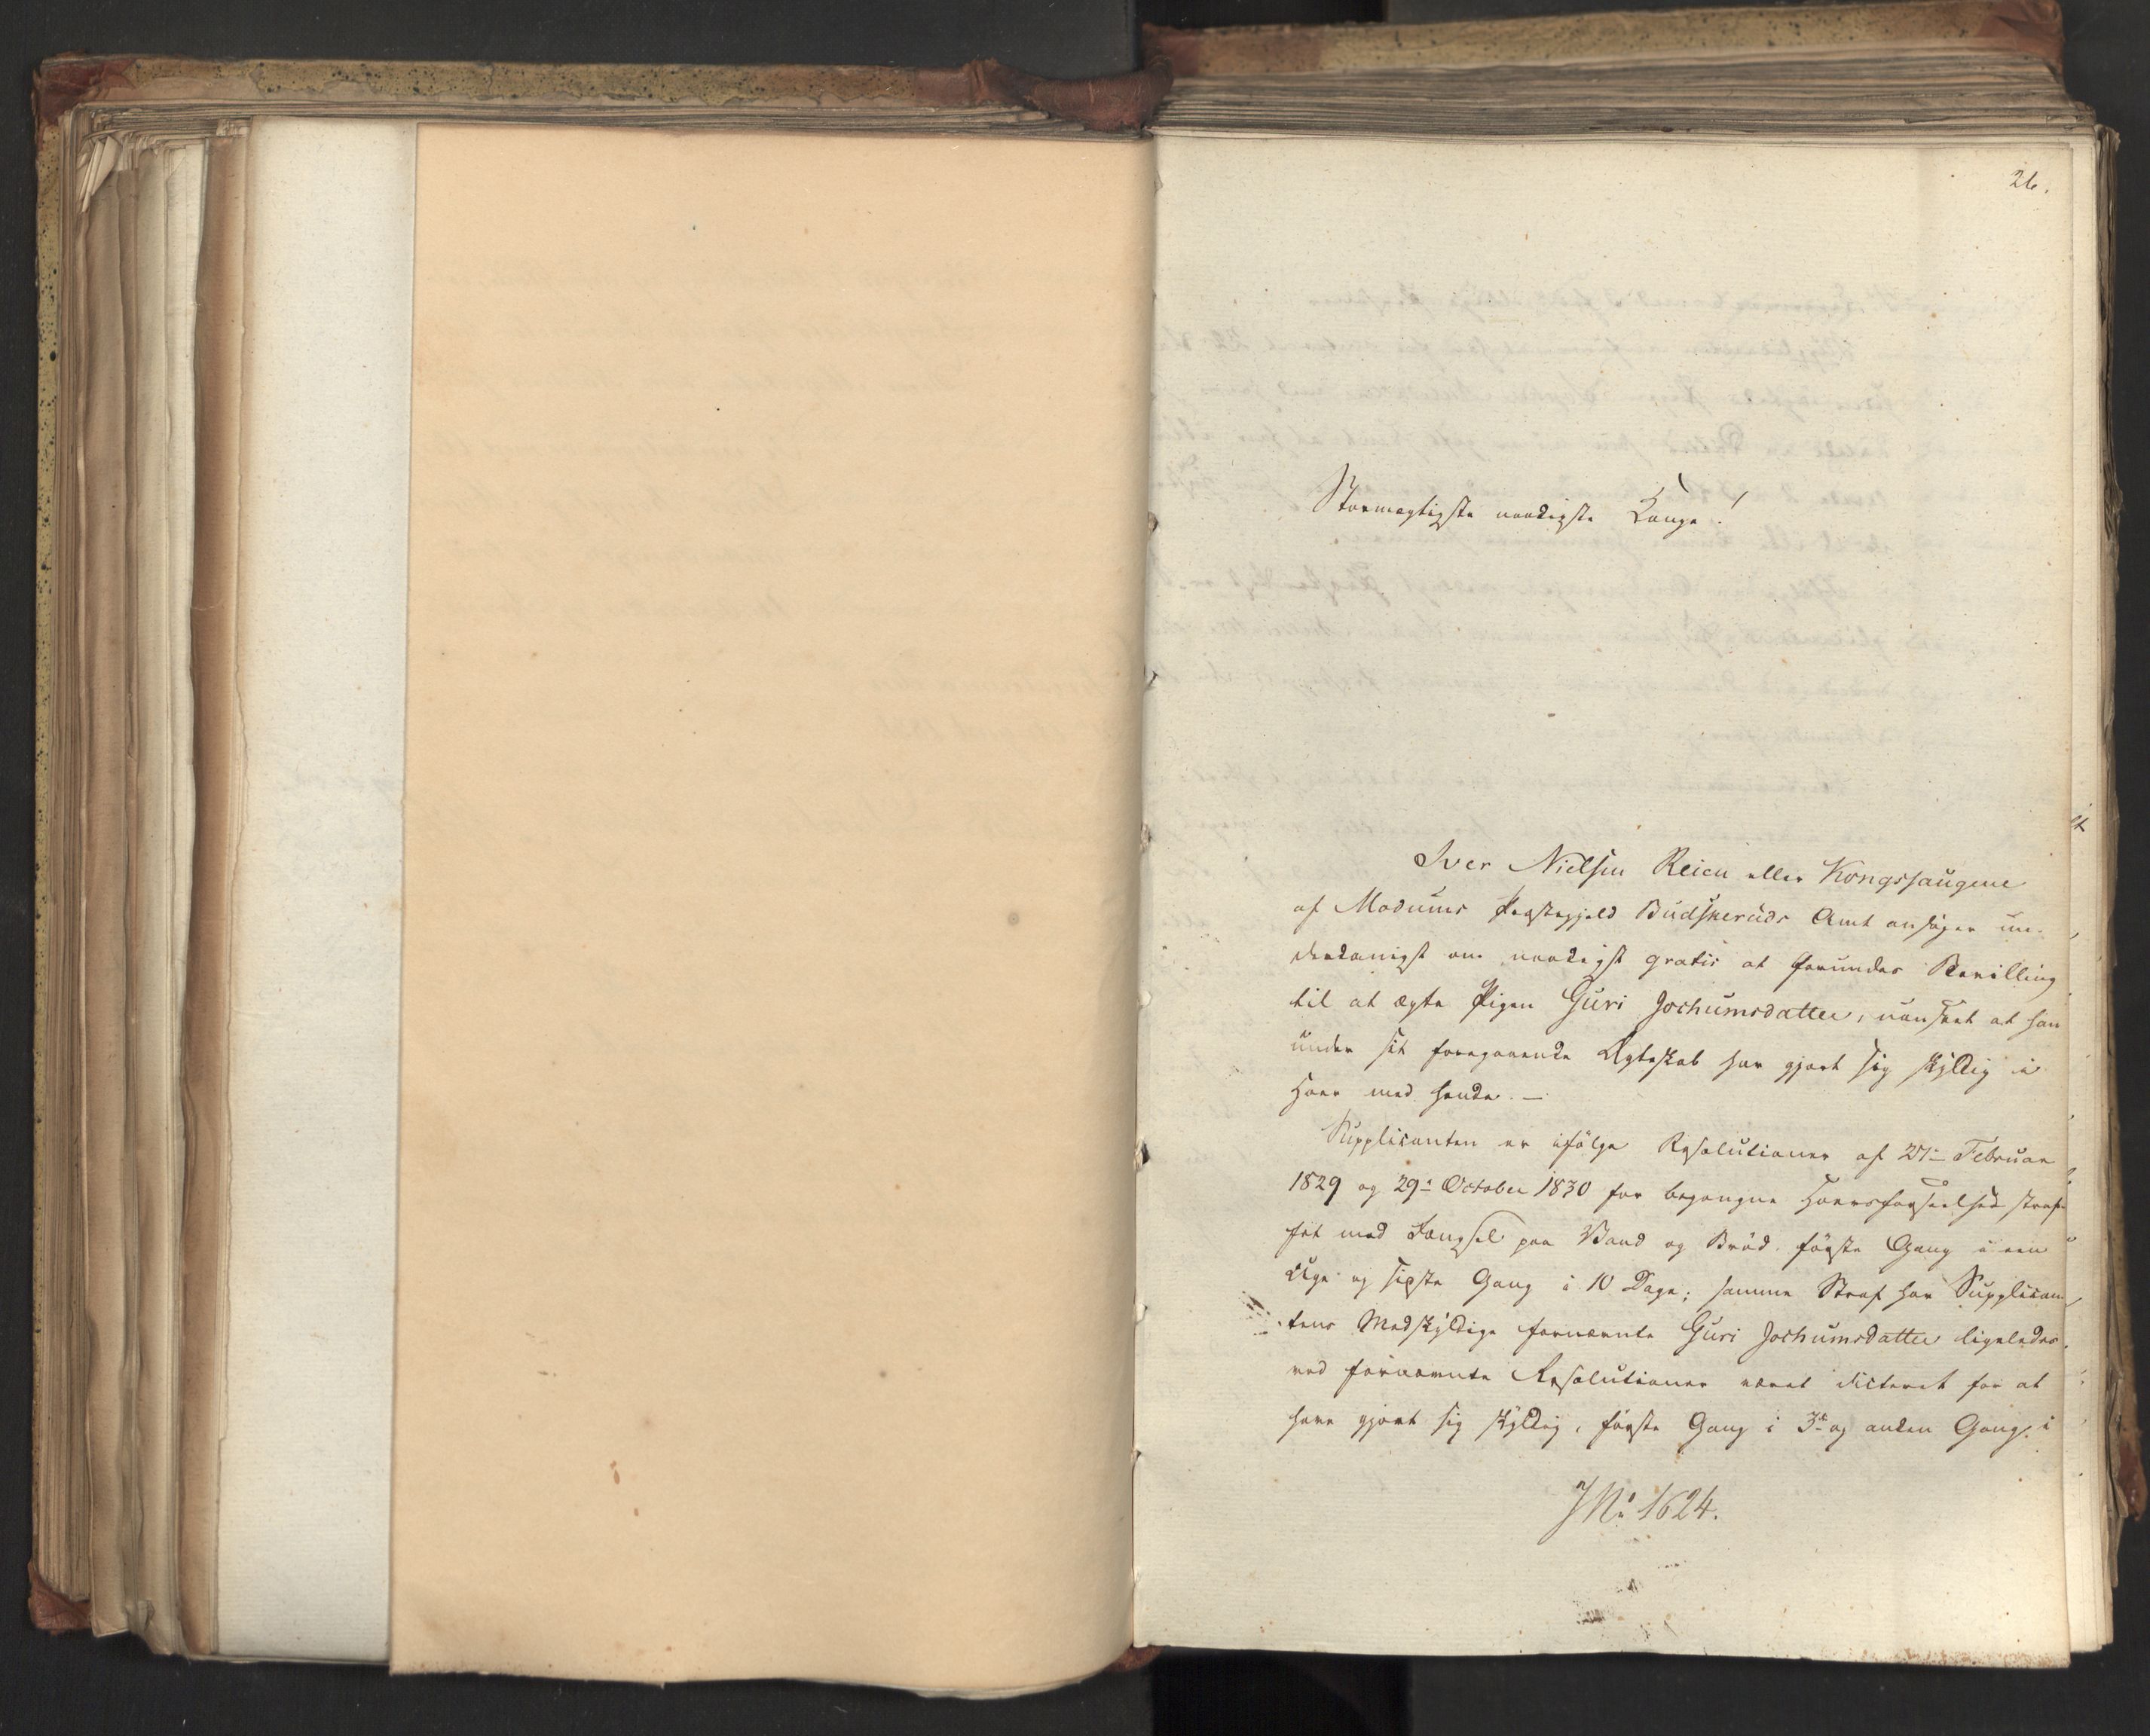 26.
Stormægtigste naadigste Konge!
Iver Nielsen Reien eller Kongssaugene
af Modums Præstegjeld Budskeruds Amt ansøger un-
derdanigst om naadigst gratis at forundes Bevilling
til at ægte Pigen Guri Jochumsdatter, uanseet at han
under sit foregaaende Ægteskab har gjort sig skyldig i
Hoer med hende. —
Supplicanten er ifølge Resolutioner af Februar
1829 og 29de October 1830 for begangne Hoersforseelser straf-
fet med Fængsel paa Vand og Brød første Gang i een
Uge og sidste Gang i 10 Dage; samme Straf har Supplican-
tens Medskyldige fornævnte Guri Jochumsdatter ligeledes
ved fornævnte Resolutioner været dicteret for at
have gjort sig skyldig, første Gang i 3die og anden Gang i
JNo 1624.